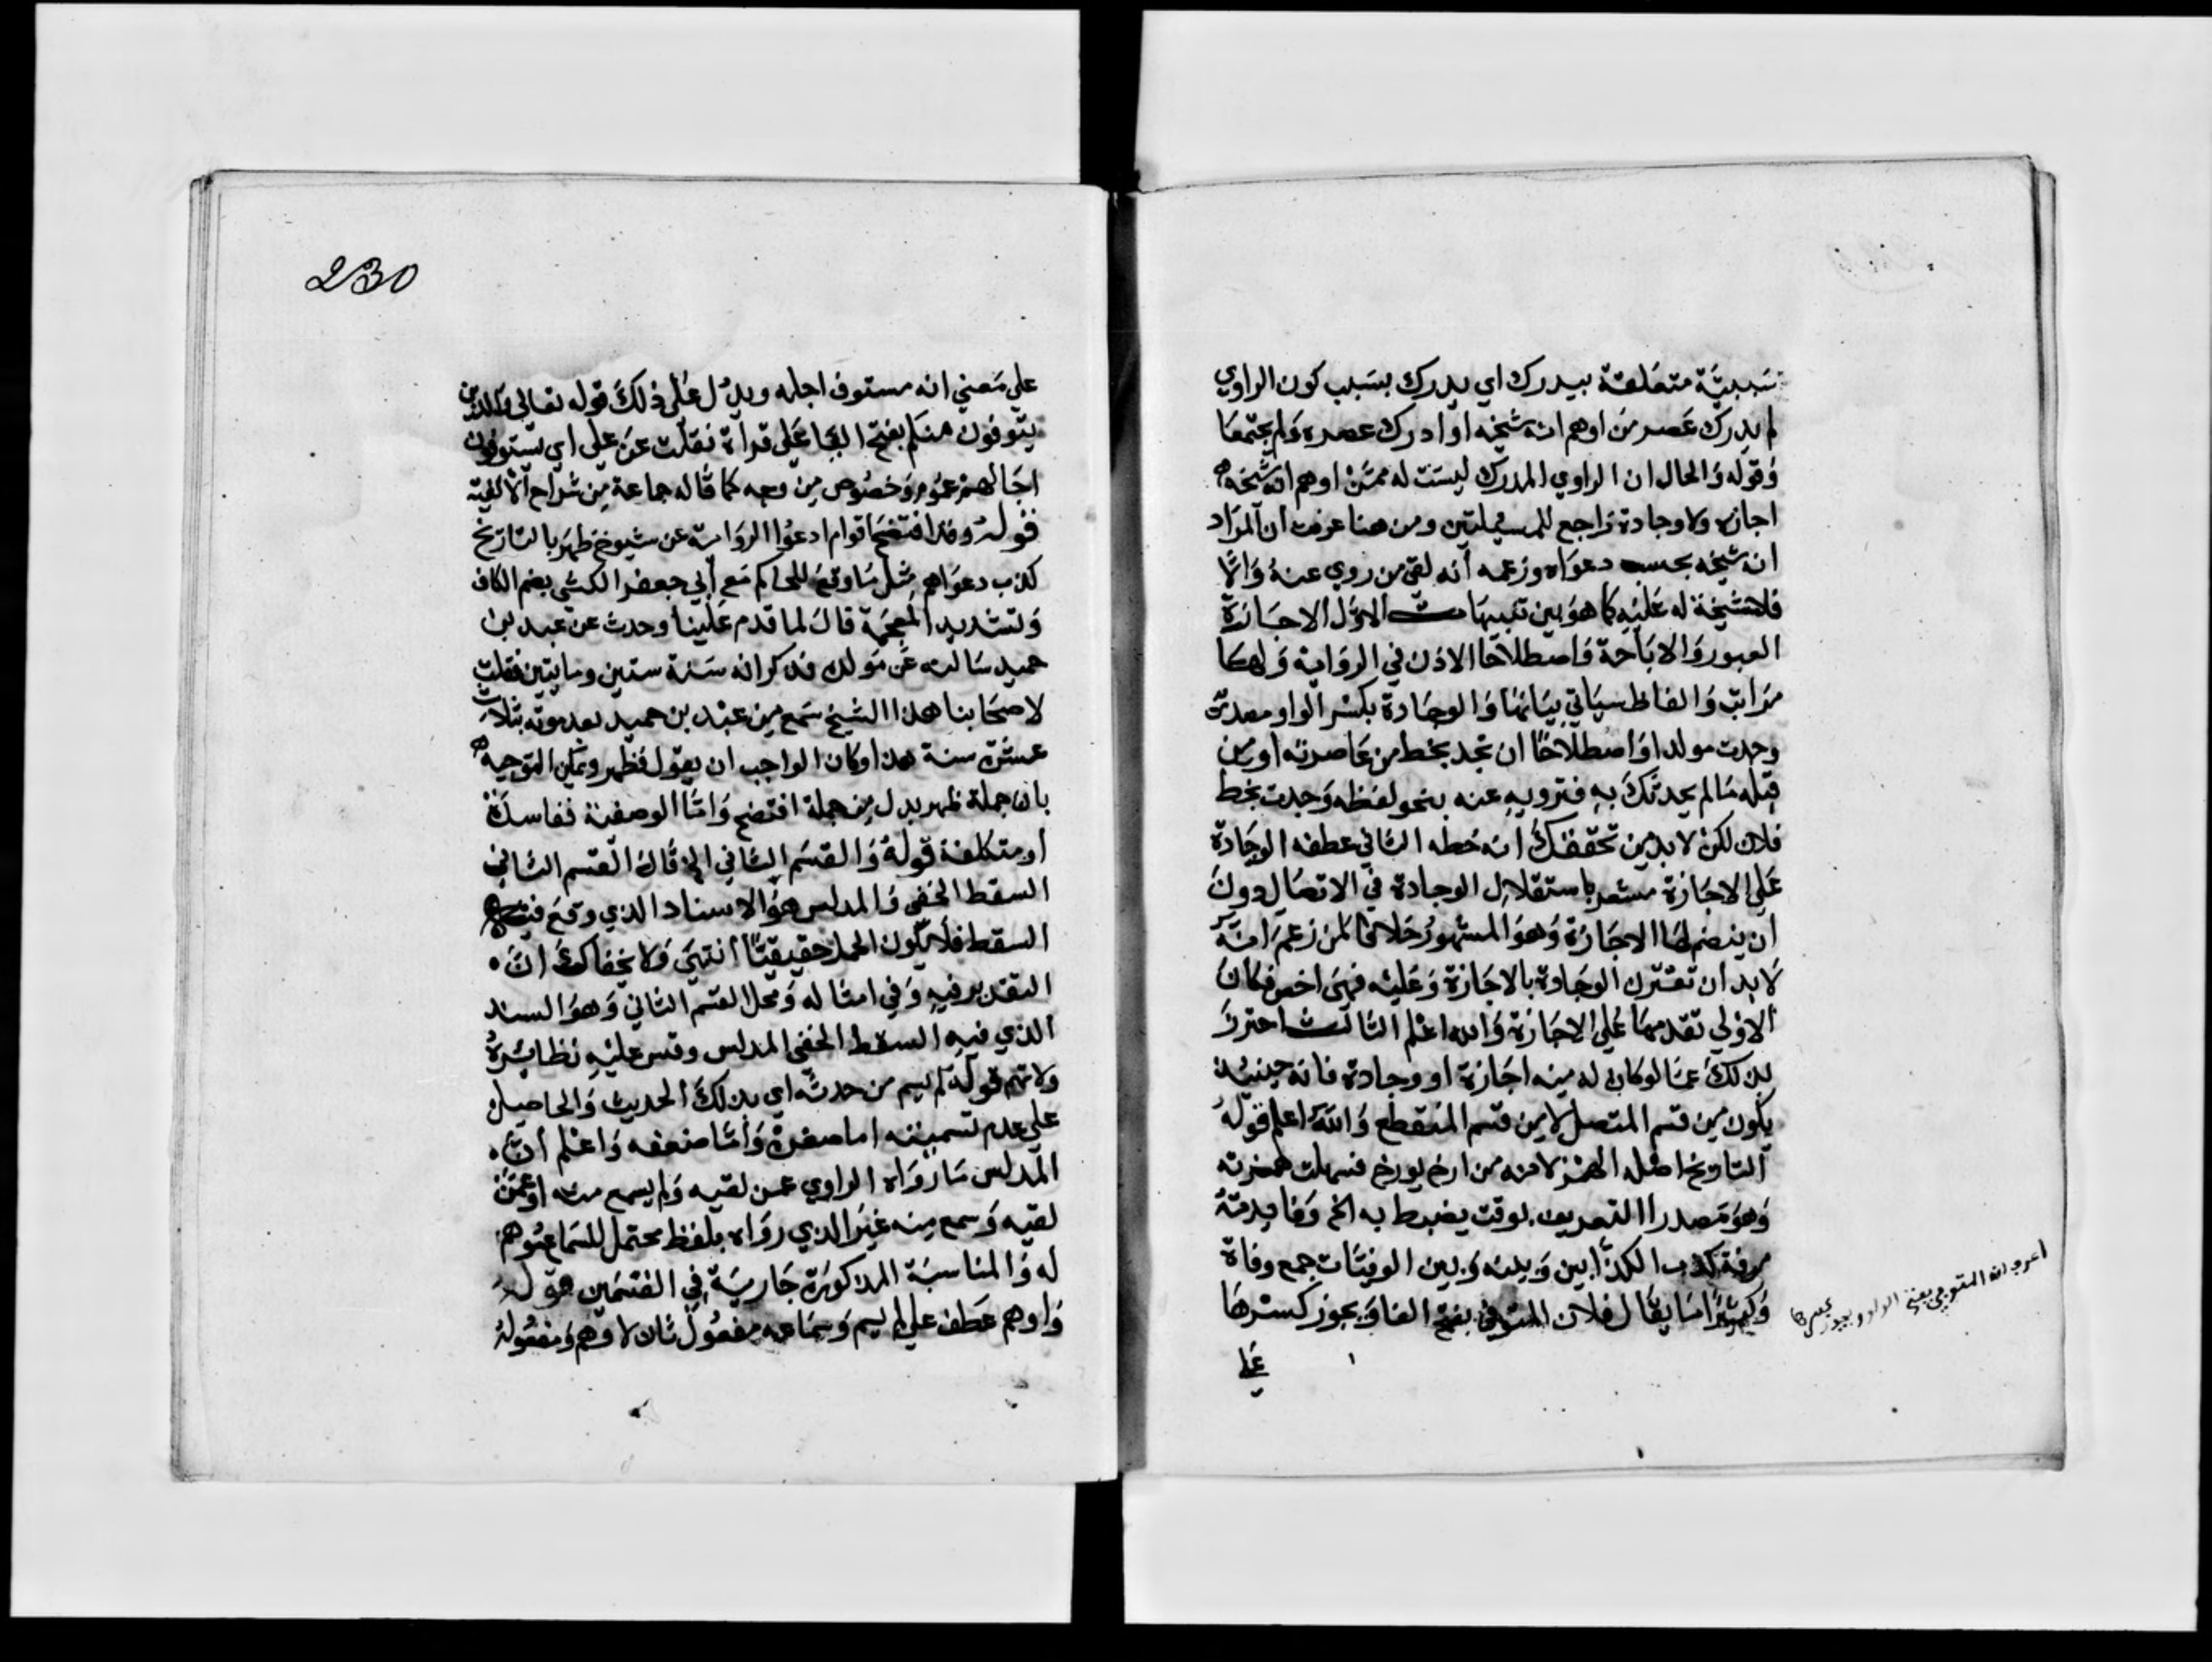 سببية متعلقة بيدرك اي يدرك بسبب كون الراوي
لم يدرك عصر من اوهم انه شيخه او ادرك عصره ولم يجتمعا
وقوله والحال ان الراوي المدرك ليست له ممن اوهم انه شيخه
اجازه ولا وجادة راجع للمسيلتين ومن هنا عرفت ان المراد
انه شيخه بحسب دعواه وزعمه أنه لقي من روي عنه والا
فلا شيخة له عليه كما هو بين تنبيهات الاول الاجازة
العبور والاباحة واصطلاحا الاذن في الرواية ولها
مراتب والفاظ سياتي بيانها والوجادة بكسر الواو مصدر
وجدت مولدا واصطلاحا ان تجد بخط من عاصرته او من
قبله مالم يحدثك به فترويه عنه بنحو لفظه وجدت بخط
فلان لكن لا بد من تحققك انه خطه الثاني عطفه الوجادة
علي الاجازة مشعر باستقلال الوجادة في الاتصال دون
ان ينضم لها الاجازة وهو المشهور خلافا لمن زعم انه
لابد ان تقترن الوجادة بالاجازة وعليه فهي اخص فكان
الاولي تقدمها علي الاجازة والله اعلم الثالث احترز
بذلك عما لو كان له منه اجازة او وجادة فانه حينيذ
يكون من قسم المتصل لا من قسم المنقطع والله اعلم قوله
التاريخ اصله الهمز لانه من ارخ يورخ فسهلت همزته
وهو مصدرا التعريف بوقت يضبط به الخ وفايدته
معرفة كذب الكذابين وبينه وبين الوفيات جمع وفاة
وكثيرا ما يقال فلان المتوفي بفتح الفا ويجوز كسرها
علي
230
علي معني انه مستوف اجله ويدل علي ذلك قوله تعالي والذين
يتوفون منكم بفتح اليا علي قراة نقلت عن علي اي يستوفون
اجالهم عموم وخصوص من وجه كما قاله جماعة من شراح الالفية
قوله وقد افتضح اقوام ادعوا الرواية عن شيوخ ظهر بالتاريخ
كذب دعواهم مثل ما وقع للحاكم مع أبي جعفر الكشي بضم الكاف
وتشديد المعجمة قال لما قدم علينا وحدث عن عبد بن
حميد سالته عن مولده فذكر انه سنة ستين ومايتين فقلت
لاصحابنا هذا الشيخ سمع من عبد بن حميد بعد موته بثلاث
عشرة سنة هذا وكان الواجب ان يقول فظهر ويمكن التوجيه
بان جملة ظهر بدل من جملة افتضح واما الوصفية ففاسدة
او متكلفة قوله والقسم الثاني الخ قال القسم الثاني
السقط الخفي والمدلس هو الاسناد الذي وقع فيه
السقط فلا يكون الحمل حقيقيا انتهي ولا يخفاك ان
التقدير فيه وفي امثاله ومحل القسم الثاني وهو السند
الذي فيه السقط الخفي المدلس وقس عليه نظائره
ولا تهم قوله لم يسم من حدثه اي بذلك الحديث والحاصل
علي عدم تسميته اما صغره واما ضعفه واعلم ان
المدلس ما رواه الراوي عمن لقيه ولم يسمع منه او عمن
لقيه وسمع منه غير الذي رواه بلفظ محتمل للسماع موهم
له والمناسبة المذكورة جارية في القسمين قوله
واوهم عطف علي لم يسم وسماعه مفعول ثان لاوهم ومفعوله